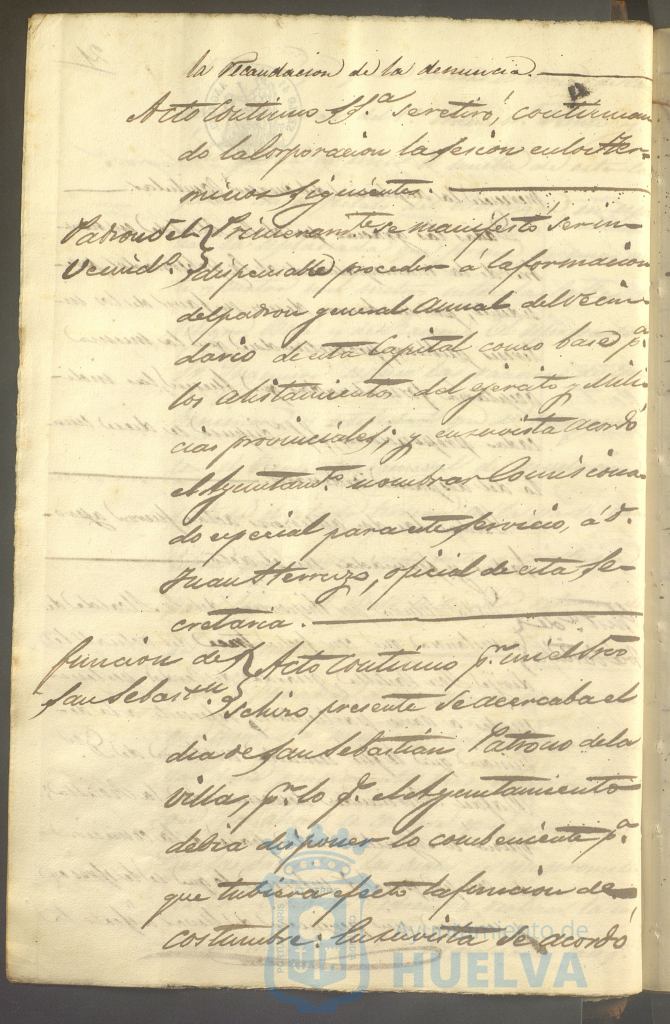 la recaudacion de la denuncia.
Acto Continuo se retiró, continuan
do la Corporacion la sesion en los ter-
minos siguientes.
Padron del Primeramte. se manifestó ser in-
Vecindo. dispensable proceder á la formacion
del padron general Anual del Vecin
dario de esta Capital como base pa.
los alistamientos del ejercito y Mili
cias provinciales; y en su vista acordó
el Ayuntamto. nombrar Comisiona-
do especial para este servicio, á D.
Juan Herruzo, oficial de esta Se-
cretaria.
funcion de Acto Continuo pr. mi el Srio
San Sebastn. se hizo presente se acercaba el
dia de San Sebastián Patrono de la
Villa, pr. lo q. el Ayuntamiento
debia disponer lo combeniente pa.
que tubiera efecto la funcion de
costumbre: En su vista se acordó
Ayuntamiento de
HUELVA